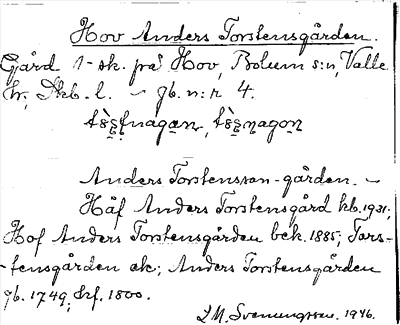 Hov Anders Torstensgården.
Gård 1-sk. på Hov, Bolum s:n, Valle
hr, Skb. l. – jb. n:r 4.
Anders Torstensson-gården. –
Håf Anders Torstensgård kb. 1931;
Hof Anders Torstensgården bek. 1885; Tors-
-tensgården ek; Anders Torstensgården
jb. 1749; skf. 1800.
L M. Svenungsson. 1946.